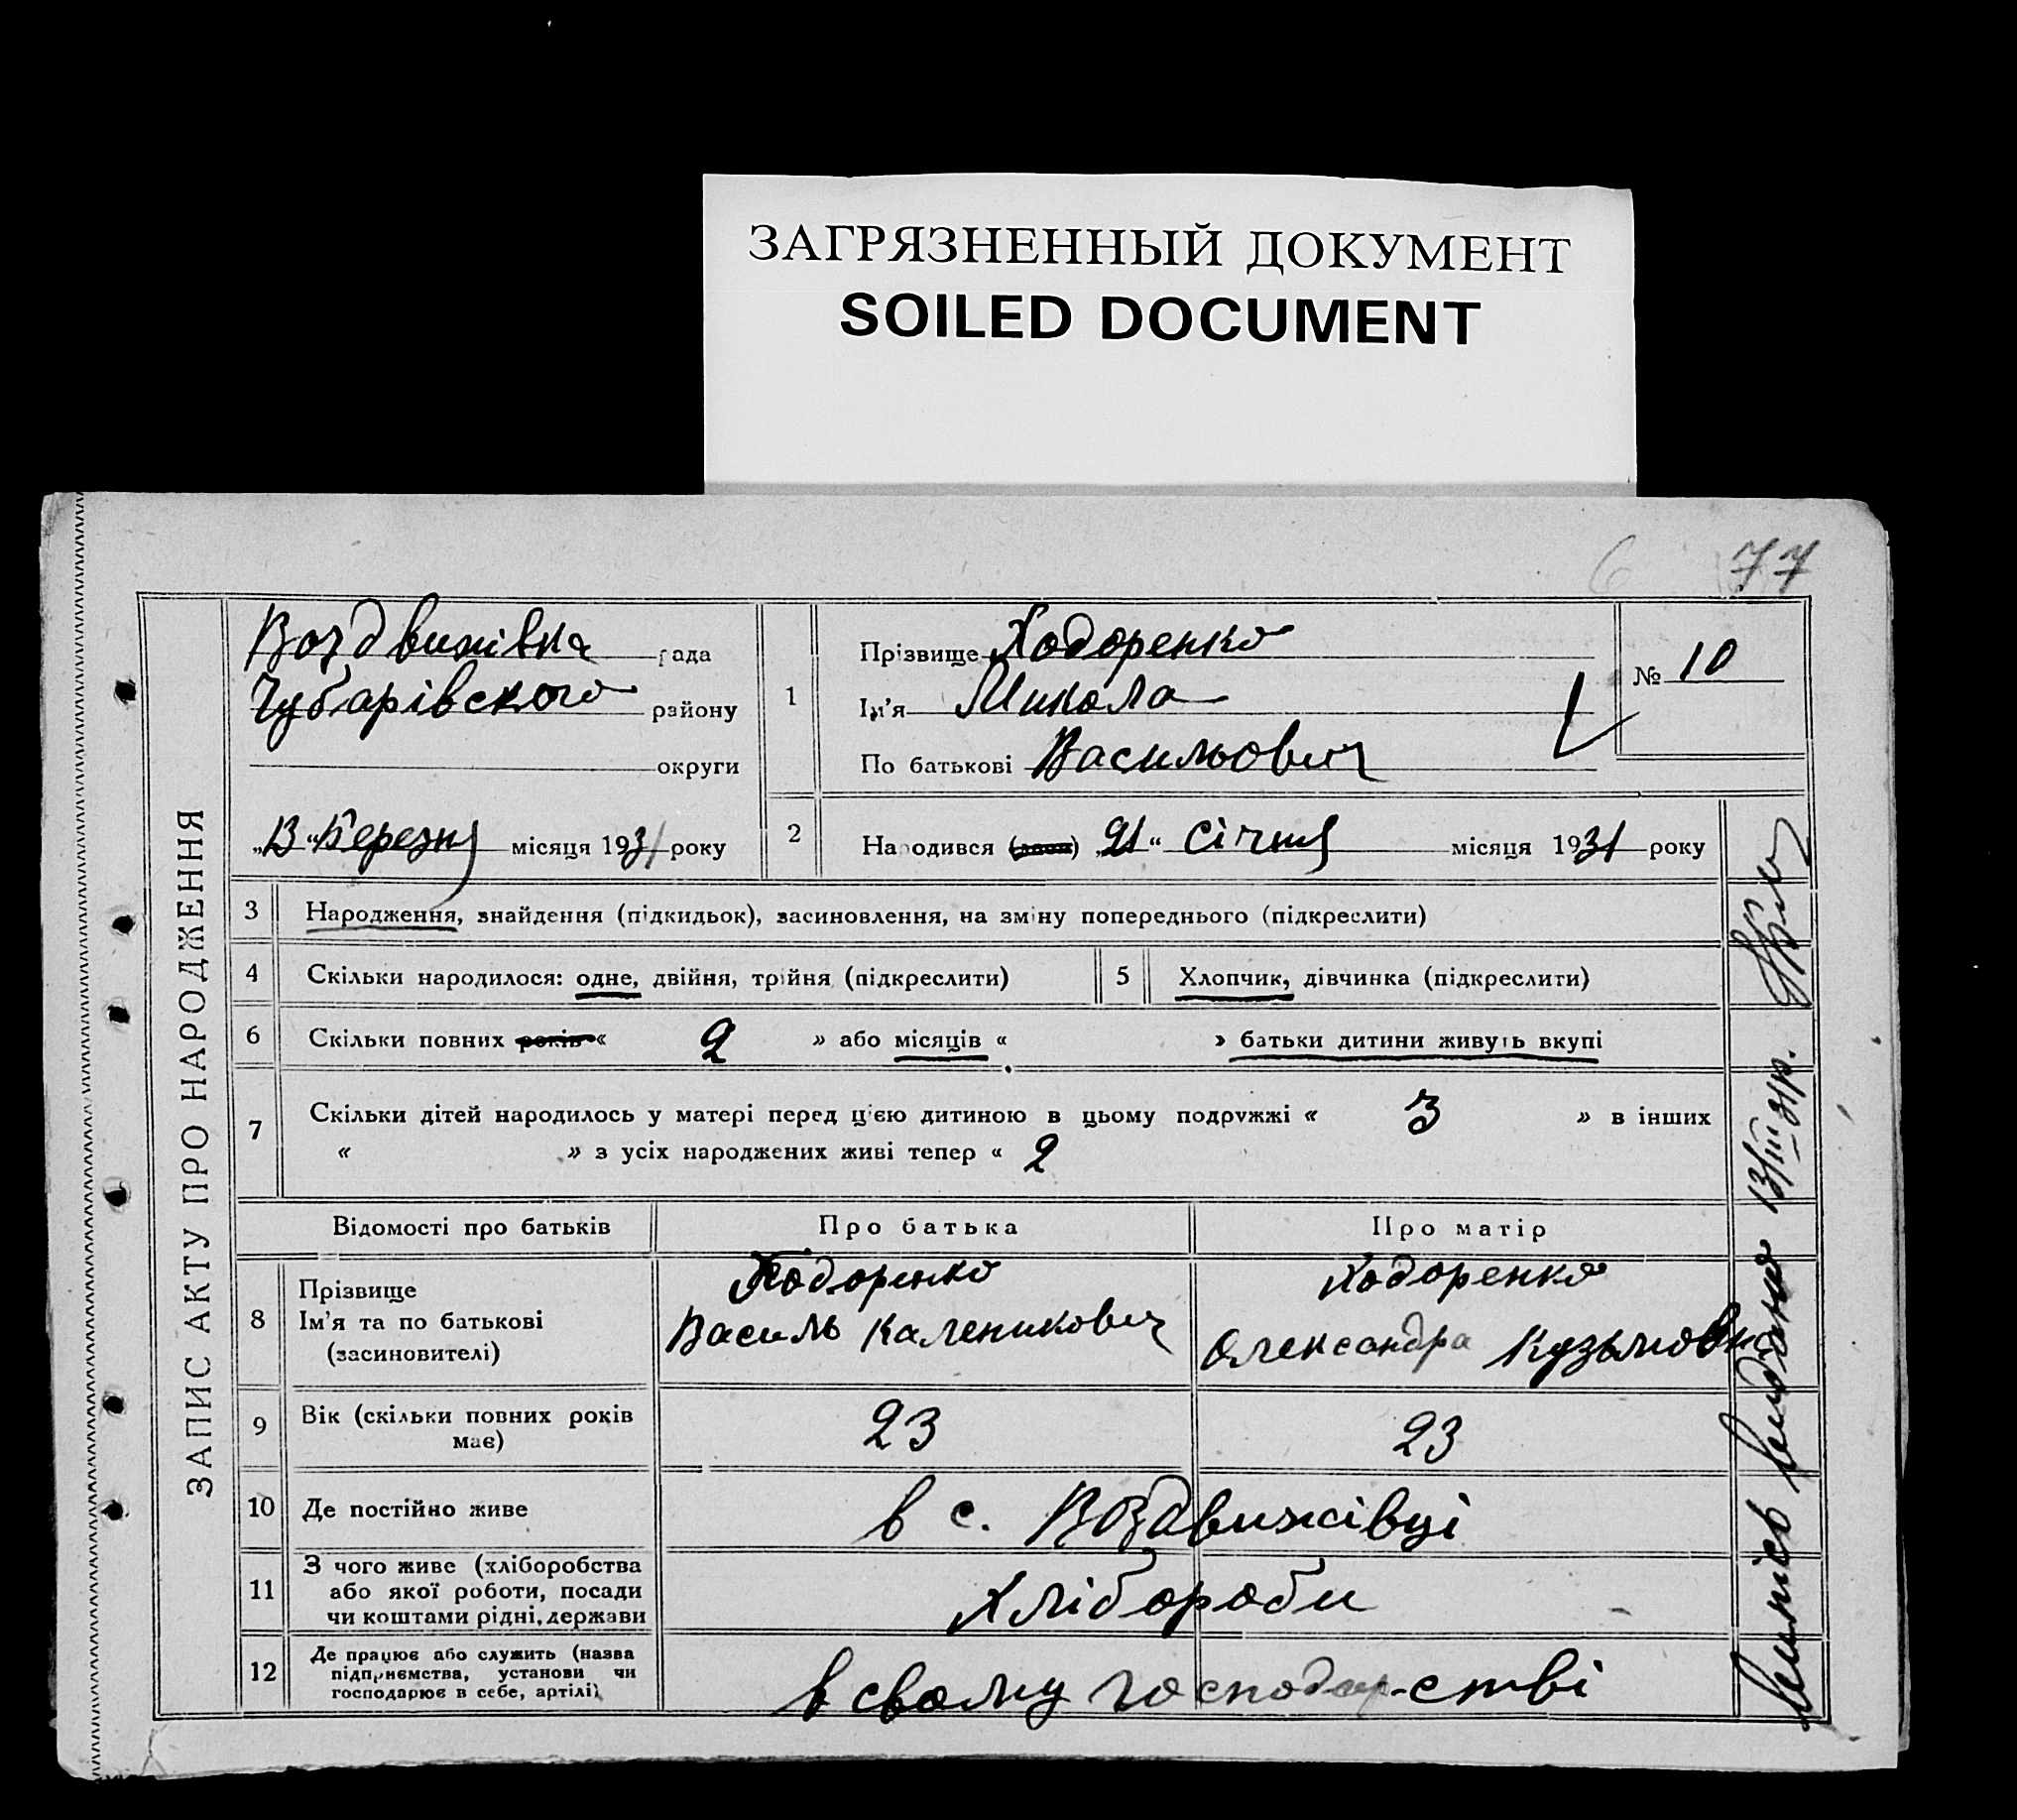 ЗАГРЯЗНЕННЫЙ ДОКУМЕНТ
SOILED DOCUMENT
77
ЗАПИС АКТУ ПРО НАРОДЖЕННЯ
Воздвижівка рада
Чубарівского району
округи
„13“ Березня місяця 1931 року
1
Прізвище Ходоренко
Ім'я Микола
По батькові Васильович
№ 10
2 Народився „21“ Січня місяця 1931 року
3 Народження, знайдення (підкидьок), засиновлення, на зміну попереднього (підкреслити)
4 Скільки народилося: одне, двійня, трійня (підкреслити)
5 Хлопчик, дівчинка (підкреслити)
6 Скільки повних років « 2 » або місяців « » батьки дитини живуть вкупі
7 Скільки дітей народилось у матері перед цією дитиною в цьому подружжі « 3 » в інших
« » з усіх народжених живі тепер « 2
Відомості про батьків
Про батька
Про матір
8 Прізвище
Ім'я та по батькові
(засиновителі)
Ходоренко
Василь Каленикович
Ходоренко
Олександра Кузьмовна
9 Вік (скільки повних років
має)
23
23
10 Де постійно живе
в с. Воздвижівці
11 З чого живе (хліборобства
або якої роботи, посади
чи коштами рідні, держави
Хлібороби
12 Де працює або служить (назва
підприємства, установи чи
господарює в себе, артілі)
в свому господар-стві
Випись видано 13/III-31р.